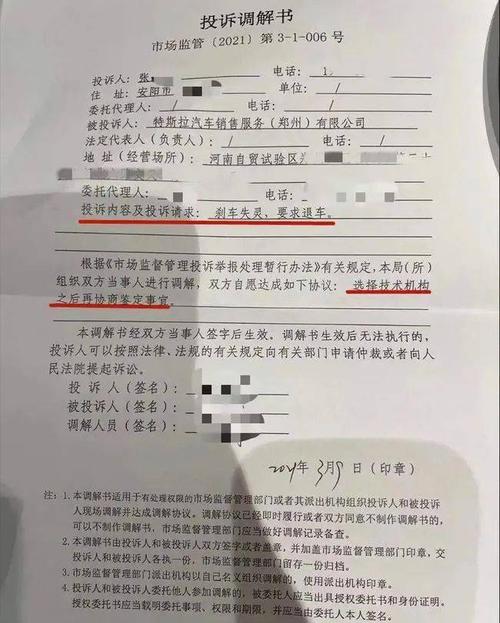 投诉调解书
市场监管〔2021〕第 3-1-006 号
投诉人:张 电话:1
住 址:安阳市 单位:/
委托代理人:/ 电话:/
被投诉人:特斯拉汽车销售服务(郑州)有限公司
法定代表人(负责人):/ 电话:/
地 址(经营场所):河南自贸试验区郑
委托代理人: 电话:
投诉内容及投诉请求:刹车失灵、要求退车。
根据《市场监督管理投诉举报处理暂行办法》有关规定,本局(所)
组织双方当事人进行调解,双方自愿达成如下协议:选择技术机构
之后再协商鉴定事宜。
本调解书经双方当事人签字后生效。调解书生效后无法执行的,
投诉人可以按照法律、法规的有关规定向有关部门申请仲裁或者向人
民法院提起诉讼。
投 诉 人(签名):
被投诉人(签名):
调解人员(签名):
2021年3月9日(印章)
注:1.本调解书适用于有处理权限的市场监督管理部门或者其派出机构组织投诉人和被投诉
人现场调解并达成调解协议。调解协议已经即时履行或者双方同意不制作调解书的,
可以不制作调解书,市场监督管理部门应当做好调解记录备查。
2.本调解书由投诉人和被投诉人双方签字或者盖章,并加盖市场监督管理部门印章,交
投诉人和被投诉人各执一份,市场监督管理部门留存一份归档。
3.市场监督管理部门派出机构以自己名义组织调解的,使用派出机构印章。
4.投诉人或者被投诉人委托他人参加调解的,被委托人应当出具授权委托书和身份证明。
授权委托书应当载明委托事项、权限和期限,并应当由委托人本人签名。